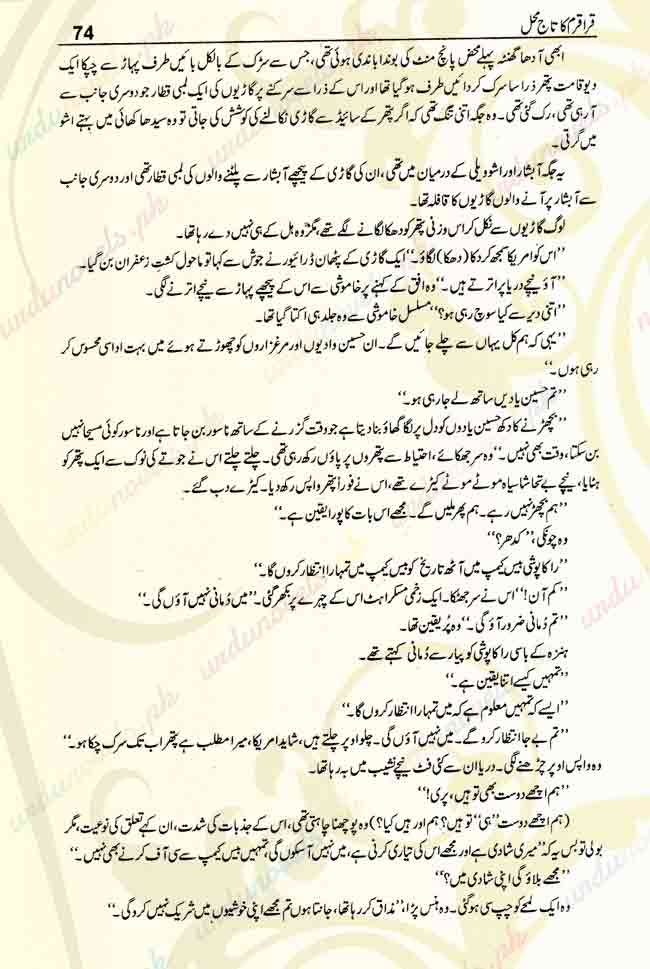 قراقرم کا تاج محل
74
ابھی آدھا گھنٹہ پہلے محض پانچ منٹ کی بوندا باندی ہوئی تھی، جس سے سڑک کے بالکل بائیں طرف پہاڑ سے چپکا ایک
دیو قامت پتھر ذرا سا سرک کر دائیں طرف ہو گیا تھا اور اس کے ذرا سے سرکنے پر گاڑیوں کی ایک لمبی قطار جو دوسری جانب سے
آ رہی تھی، رک گئی تھی۔ وہ جگہ اتنی تنگ تھی کہ اگر پتھر کے سائیڈ سے گاڑی نکالنے کی کوشش کی جاتی تو وہ سیدھا کھائی میں بہتے اشو
میں گرتی۔
یہ جگہ آبشار اور اشو ویلی کے درمیان میں تھی، ان کی گاڑی کے پیچھے آبشار سے پلٹنے والوں کی لمبی قطار تھی اور دوسری جانب
سے آبشار پر آنے والوں گاڑیوں کا قافلہ تھا۔
لوگ گاڑیوں سے نکل کر اس وزنی پتھر کو دھکا لگانے لگے تھے، مگر وہ ہل کے ہی نہیں دے رہا تھا۔
”اس کو امریکا سمجھ کر دکا (دھکا) لگاؤ۔“ ایک گاڑی کے پٹھان ڈرائیور نے جوش سے کہا تو ماحول کشت زعفران بن گیا۔
”آؤ نیچے دریا پر اترتے ہیں۔“ وہ افق کے کہنے پر خاموشی سے اس کے پیچھے پہاڑ سے نیچے اترنے لگی۔
”اتنی دیر سے کیا سوچ رہی ہو؟“ مسلسل خاموشی سے وہ جلد ہی اکتا گیا تھا۔
”یہی کہ ہم کل یہاں سے چلے جائیں گے۔ ان حسین وادیوں اور مرغزاروں کو چھوڑتے ہوئے میں بہت اداسی محسوس کر
رہی ہوں۔“
”تم حسین یادیں ساتھ لے جا رہی ہو۔“
”بچھڑنے کا دکھ حسین یادوں کو دل پر لگا گھاؤ بنا دیتا ہے جو وقت گزرنے کے ساتھ ناسور بن جاتا ہے اور ناسور کوئی مسیحا نہیں
بن سکتا، وقت بھی نہیں۔“ وہ سر جھکائے، احتیاط سے پتھروں پر پاؤں رکھ رہی تھی۔ چلتے چلتے اس نے جوتے کی نوک سے ایک پتھر کو
ہٹایا، نیچے بے تحاشا سیاہ موٹے موٹے کیڑے تھے، اس نے فوراً پتھر واپس رکھ دیا۔ کیڑے دب گئے۔
”ہم بچھڑ نہیں رہے۔ ہم پھر ملیں گے۔ مجھے اس بات کا پورا یقین ہے۔“
وہ چونکی، ”کدھر؟“
”راکا پوشی بیس کیمپ میں آٹھ تاریخ کو بیس کیمپ میں تمہارا انتظار کروں گا۔“
”کم آن!“ اس نے سر جھٹکا۔ ایک زخمی مسکراہٹ اس کے چہرے پر بکھر گئی۔ ”میں دُمانی نہیں آؤں گی۔“
”تم دُمانی ضرور آؤ گی۔“ وہ پُریقین تھا۔
ہنزہ کے باسی راکا پوشی کو پیار سے دُمانی کہتے تھے۔
”تمہیں کیسے اتنا یقین ہے۔“
”ایسے کہ تمہیں معلوم ہے کہ میں تمہارا انتظار کروں گا۔“
”تم بے جا انتظار کرو گے۔ میں نہیں آؤں گی۔ چلو اوپر چلتے ہیں، شاید امریکا، میرا مطلب ہے پتھر اب تک سرک چکا ہو۔“
وہ واپس اوپر چڑھنے لگی۔ دریا ان سے کئی فٹ نیچے نشیب میں بہ رہا تھا۔
”ہم اچھے دوست بھی تو ہیں، پری!“
(ہم اچھے دوست ”ہی“ تو ہیں؟ ہم اور ہیں کیا؟) وہ پوچھنا چاہتی تھی، اس کے جذبات کی شدت، ان کہے تعلق کی نوعیت، مگر
بولی تو بس یہ کہ ”میری شادی ہے اور مجھے اس کی تیاری کرنی ہے، میں نہیں آ سکوں گی، تمہیں بیس کیمپ سے سی آف کرنے بھی نہیں۔“
”مجھے بلاؤ گی اپنی شادی میں؟“
وہ ایک لمحے کو چپ سی ہو گئی۔ وہ ہنس پڑا، ”مذاق کر رہا تھا، جانتا ہوں تم مجھے اپنی خوشیوں میں شریک نہیں کرو گی۔“
urdunovels.pk